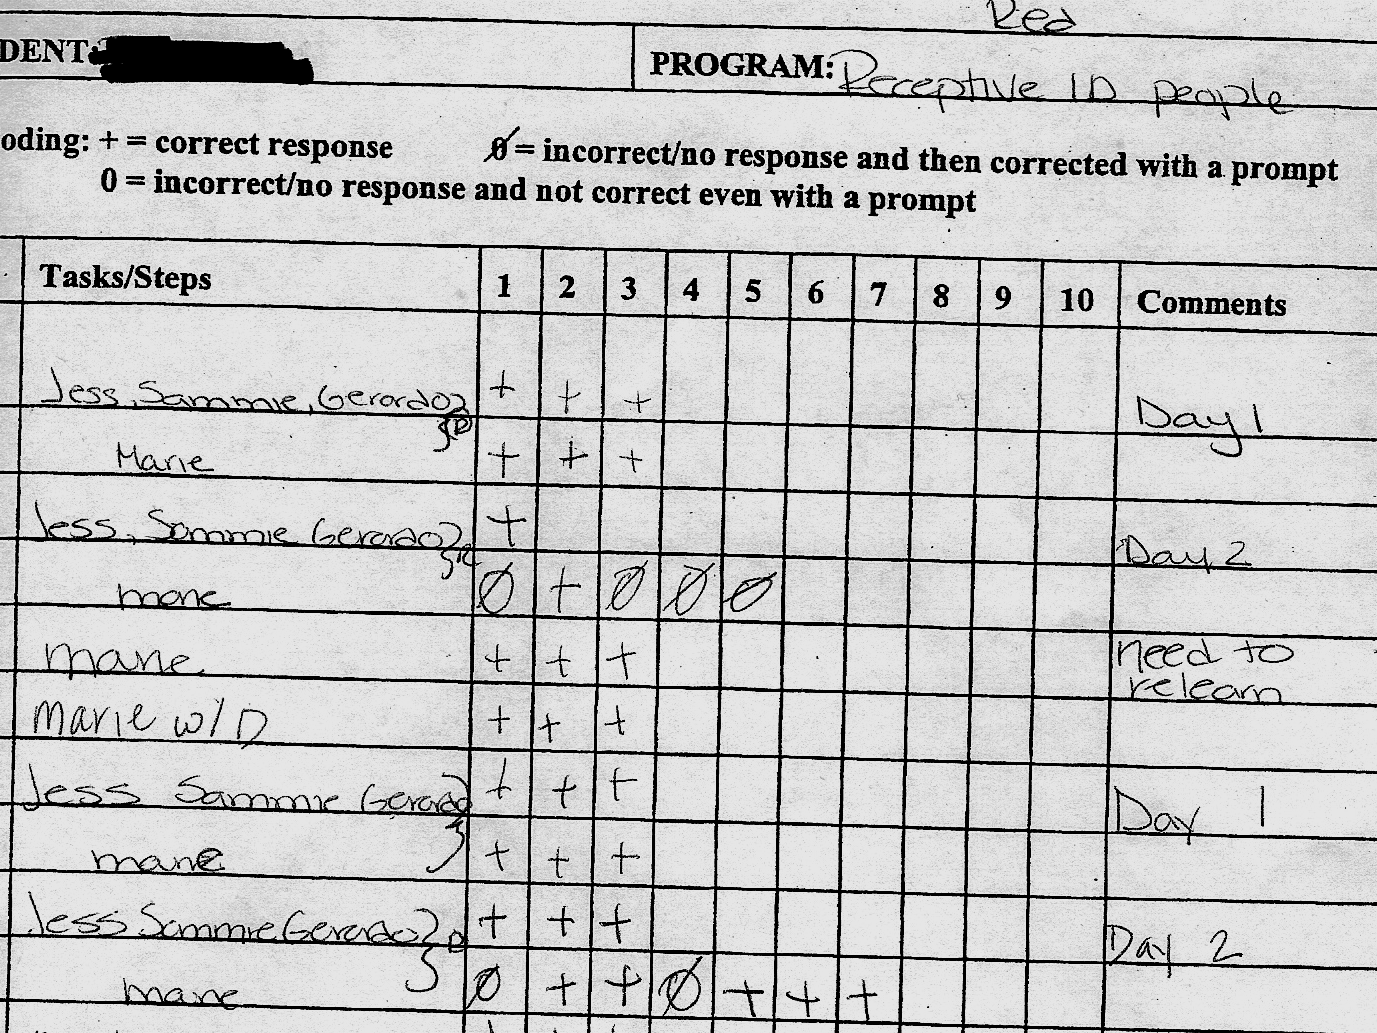 Red
DENT: PROGRAM: Receptive ID people
oding: + = correct response Ø = incorrect/no response and then corrected with a prompt
0 = incorrect/no response and not correct even with a prompt
Tasks/Steps 1 2 3 4 5 6 7 8 9 10 Comments
Jess, Sammie, Gerardo + + + Day 1
Marie + + +
Jess, Sammie Gerardo + Day 2
marie Ø + Ø Ø Ø
marie + + + need to
relearn
Marie w/ D + + +
Jess Sammie Gerardo + + + Day 1
marie + + +
Jess Sammie Gerardo D + + + Day 2
marie Ø + + Ø + + +